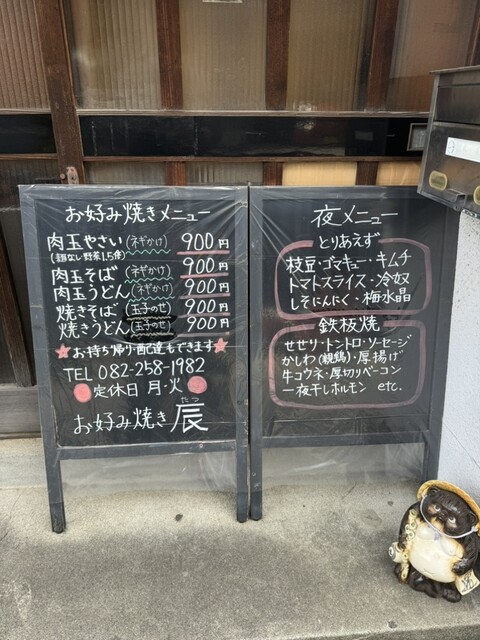 お好み焼きメニュー
肉玉やさい(ネギかけ) 900円
(麺なし野菜1.5倍)
肉玉そば(ネギかけ) 900円
肉玉うどん(ネギかけ) 900円
焼きそば(玉子のせ) 900円
焼きうどん(玉子のせ) 900円
★お持ち帰り・配達もできます★
TEL 082-258-1982
定休日 月・火
たつ
お好み焼き 辰
夜メニュー
とりあえず
枝豆・ゴマキュー・キムチ
トマトスライス・冷奴
しそにんにく・梅水晶
鉄板焼
せせり・トントロ・ソーセージ
かしわ(親鶏)・厚揚げ
牛コウネ・厚切りベーコン
一夜干しホルモン etc.